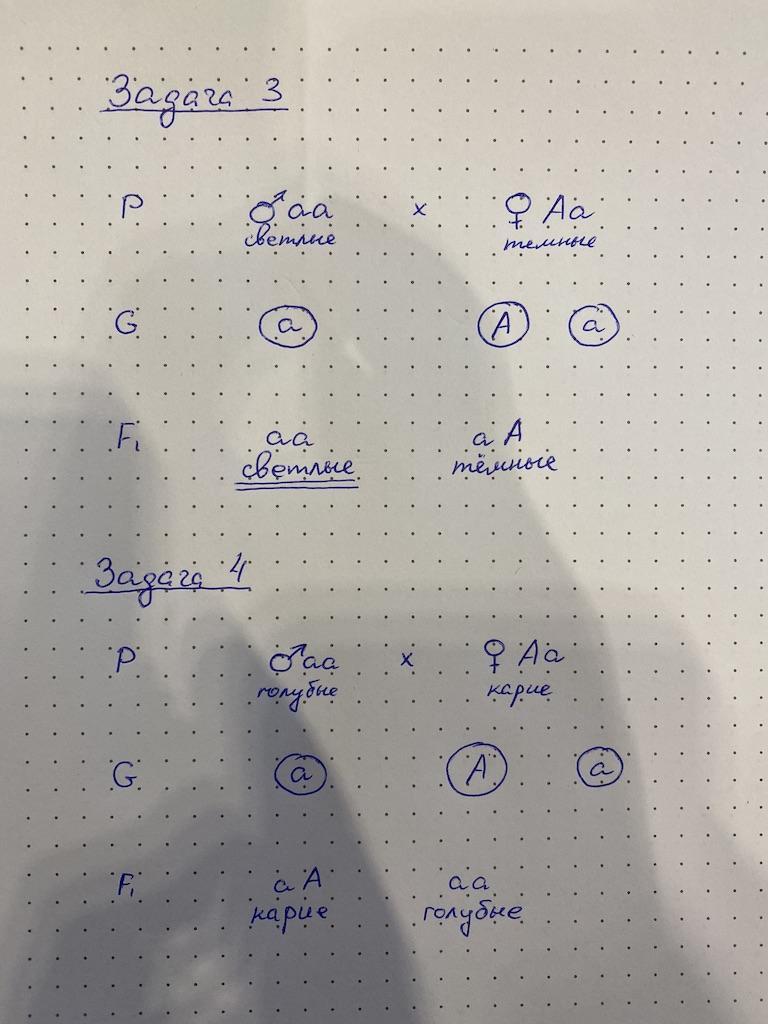 Задача 3
P ♂aa x ♀ Aa
светлые темные
G a A a
F₁ aa aA
светлые тёмные
Задача 4
P ♂aa x ♀ Aa
голубые карие
G a A a
F₁ aA aa
карие голубые